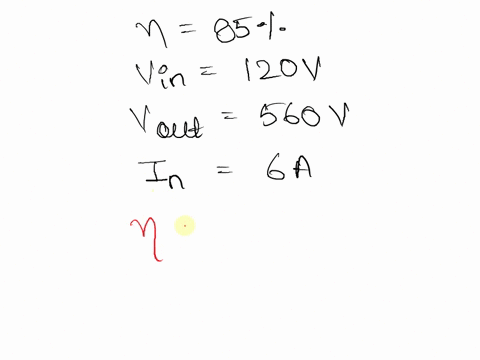 η = 85%
Vin = 120V
Vout = 560V
In = 6A
η